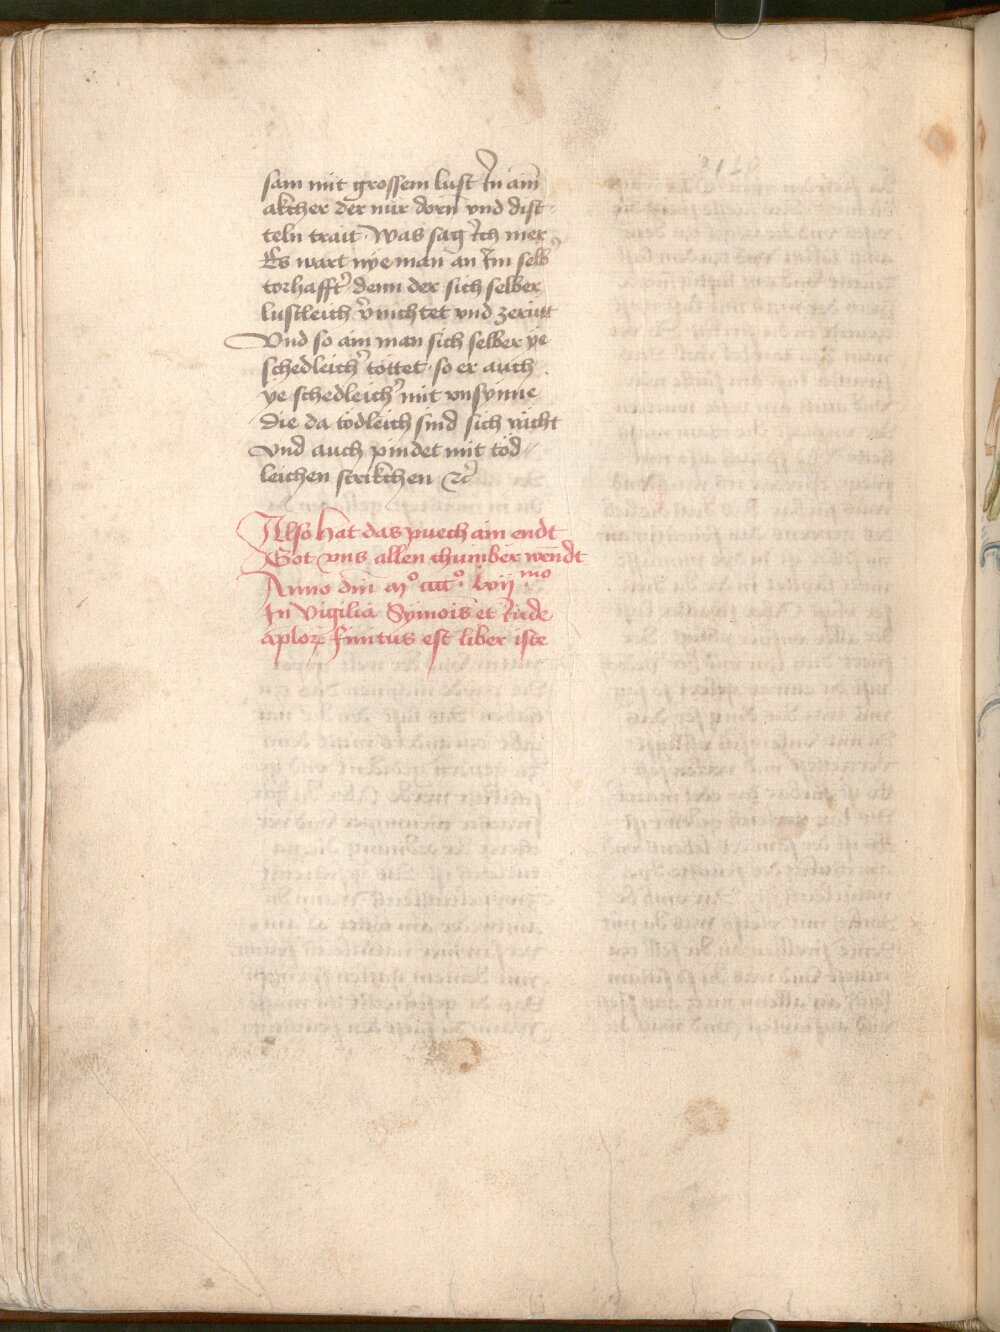 sam mit grossem lust In aim
akcher der nür dorn vnd dist
teln trait · Was sag Ich mer
Es wart nyeman an Im selb
torhafft' denn der sich selber
lustleich v'nichtet vnd zerütt
Vnd so aim man sich selber ye
schedleich' tottet · so er auch
ye schedleich' mit vnsynne
die da tödleich sind sich richt
vnd auch pindet mit töd
leichen strikchen ⁊c̄
Also hat das puech ain endt
Got vns allen chumber wendt
Anno dm̄ mº ccccº lvijmo
In Vigilia Symōis et Jude
aploꝝ finitus est liber iste